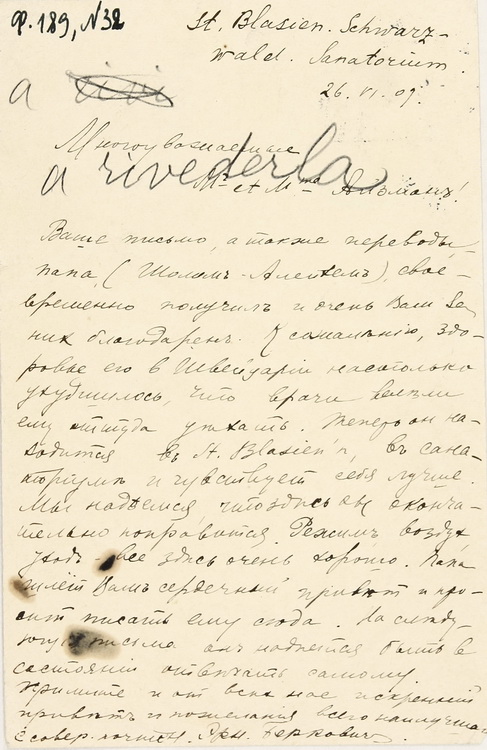 Ф. 189, N 32
St. Blasien. Schwarz-
wald. Sanatorium.
26. VI. 09.
a
Многоуважаемые
a rivederla
Mr et Mme Айзманъ!
Ваше письмо, а также переводы,
папа, (Шоломъ-Алейхемъ), свое-
временно получилъ и очень Вам за
них благодаренъ. К сожалѣнію, здо-
ровье его в Швейцаріи настолько
ухудшилось, что врачи велѣли
ему оттуда уѣхать. Теперь он на-
ходится въ St. Blasien'ѣ, въ сана-
торіумѣ и чувствует себя лучше.
Мы надѣемся что здѣсь он оконча-
тельно поправится. Режимъ воздух
уходъ - все здѣсь очень хорошо. Папа
шлетъ Вамъ сердечный привѣт и про-
ситъ писать ему сюда. На слѣду-
ющія письма онъ надѣется быть в
состояніи отвѣчать самому.
Примите и от всѣх нас искренній
привѣтъ и пожеланія всего наилучша
С совер. почтен. Эрн. Берковичъ